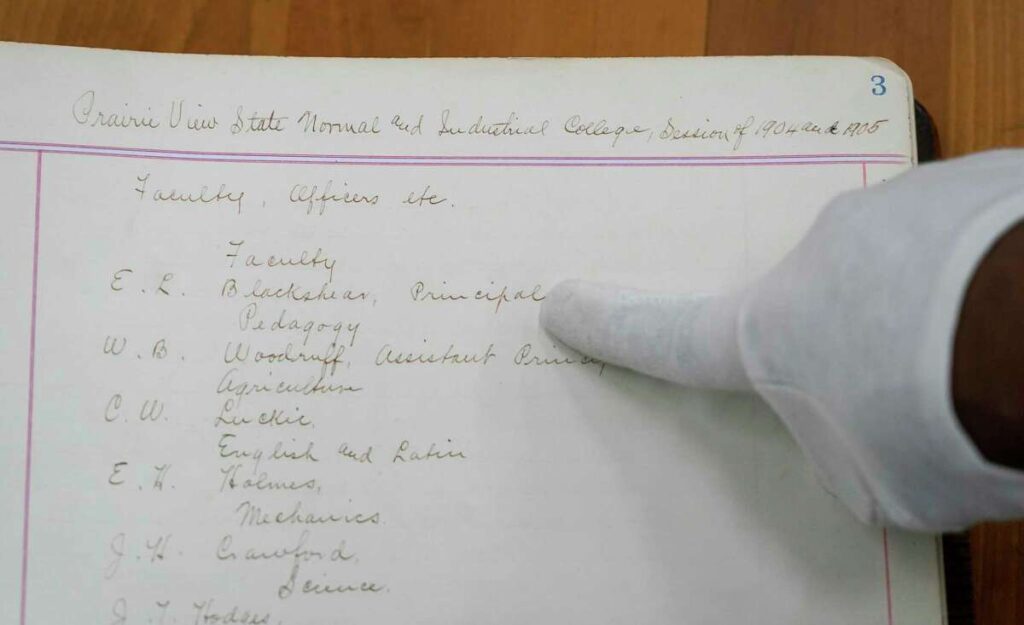 3
Prairie View State Normal and Industrial College, Session of 1904 and 1905
Faculty, Officers etc.
Faculty
E. L. Blackshear, Principal
Pedagogy
W. B. Woodruff, Assistant
Agriculture
C. W. Luckie,
English and Latin
E. H. Holmes,
Mechanics.
J. H. Crawford,
Science.
Hodges,